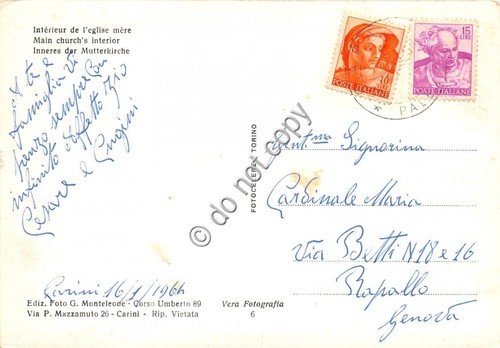 Intérieur de l'eglise mère
Main church's interior
Inneres der Mutterkirche
A te e
famiglia Vi
penso sempre con
infinito affetto Zio
Cesare e Cugini
Carini 16/1/1966
Ediz. Foto G. Monteleone - Corso Umberto 89
Via P. Mazzamuto 26 - Carini - Rip. Vietata
Vera Fotografia
6
FOTOCELERE TORINO
do not copy
15
LIRE
POSTE ITALIANE
10
POSTE ITALIANE
PAL
Gent.ma Signorina
Cardinale Maria
Via Betti N 18 e 16
Rapallo
Genova